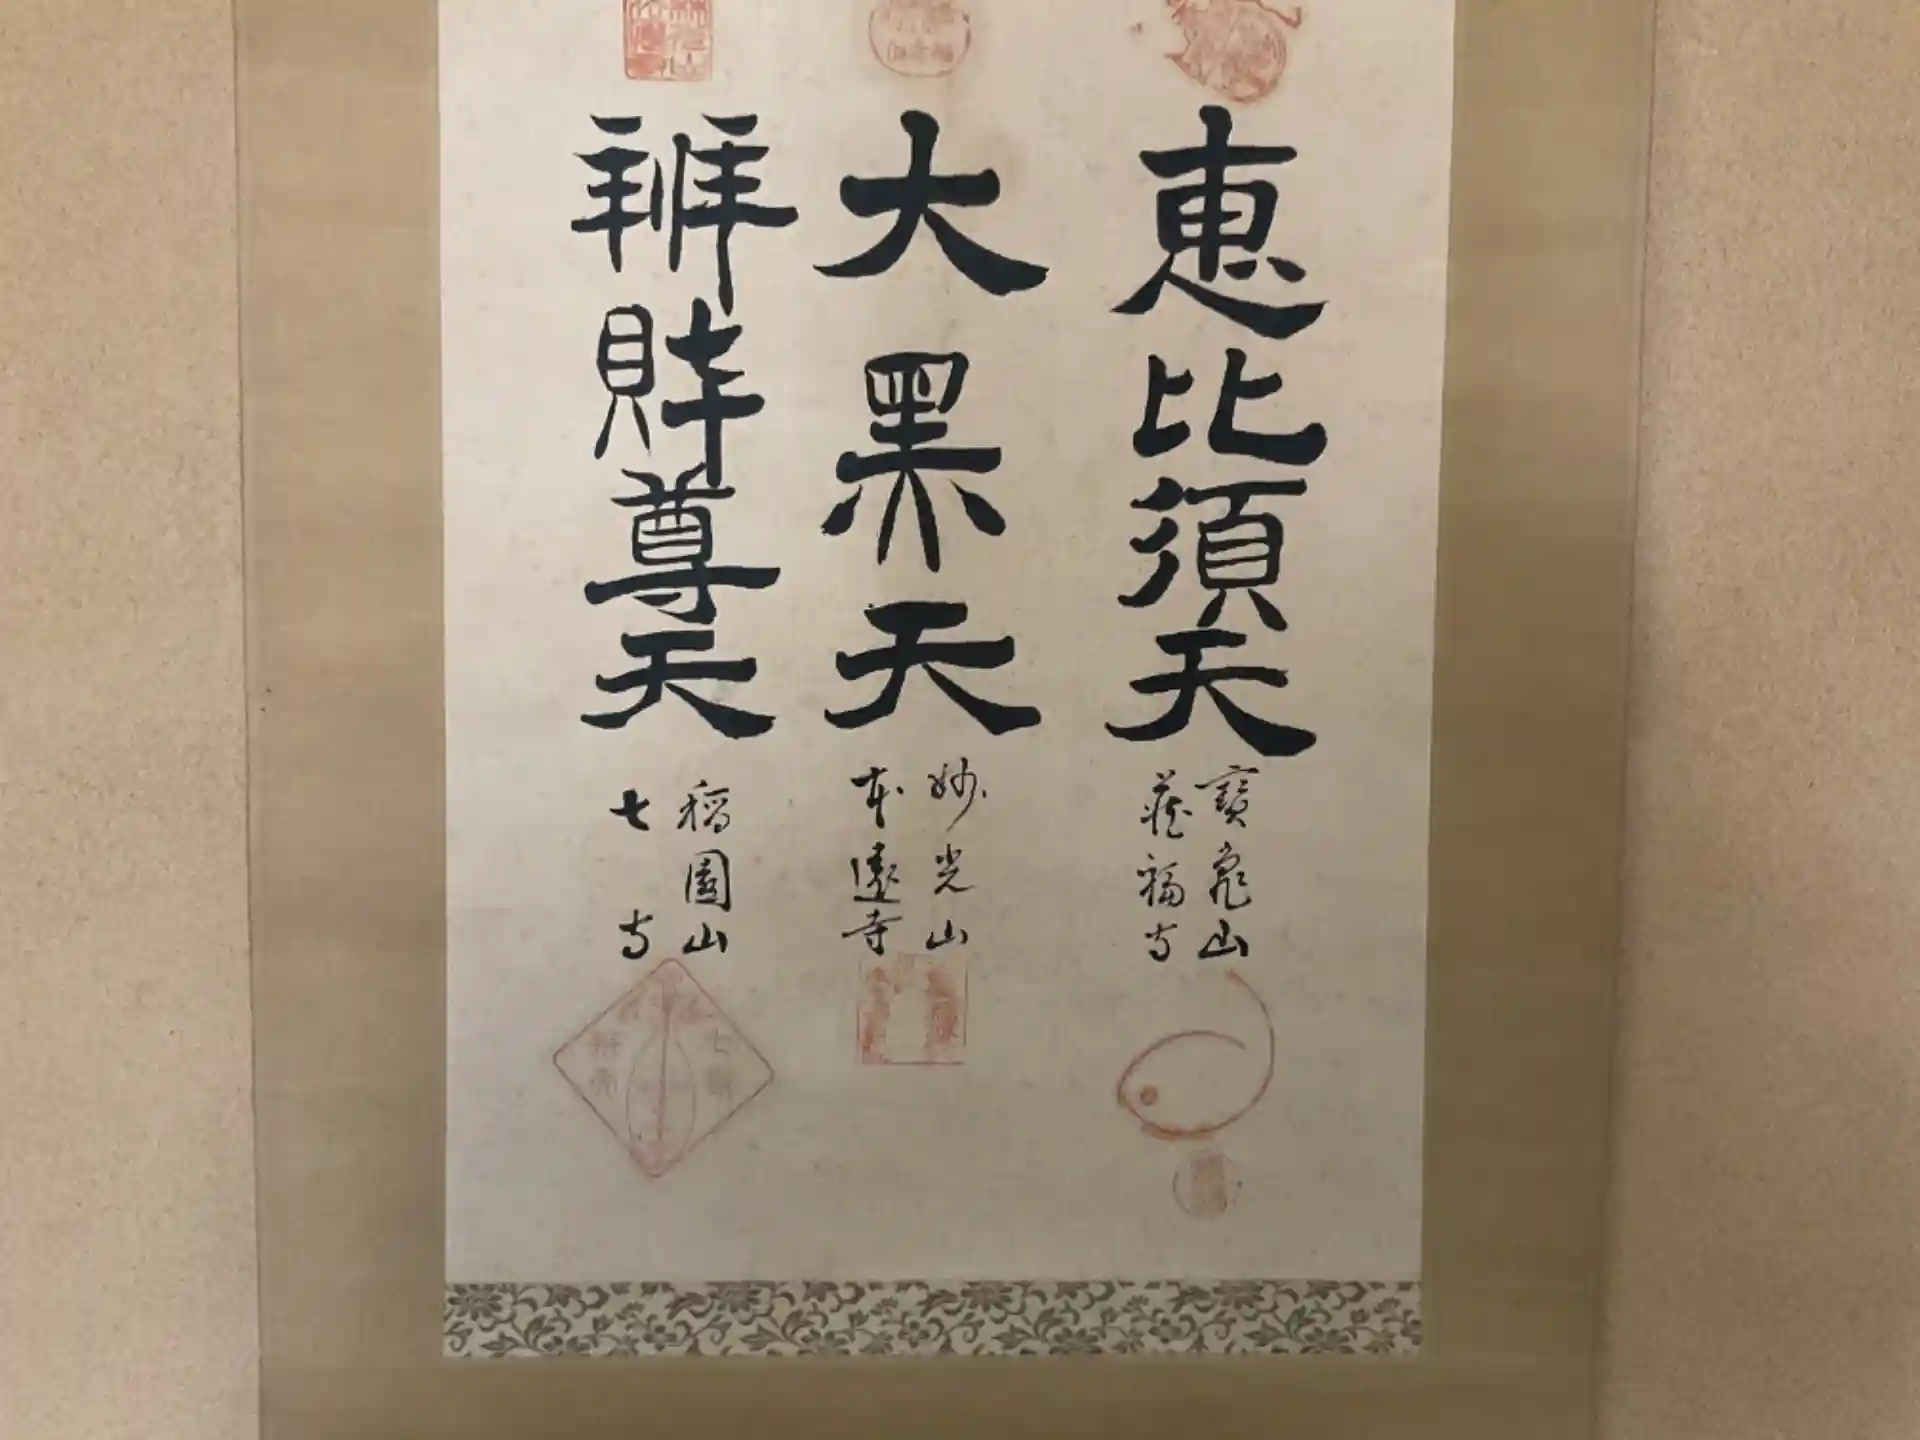 恵比須天
寶龜山
藏福寺
大黒天
妙光山
本遠寺
辨財尊天
稲園山
七寺